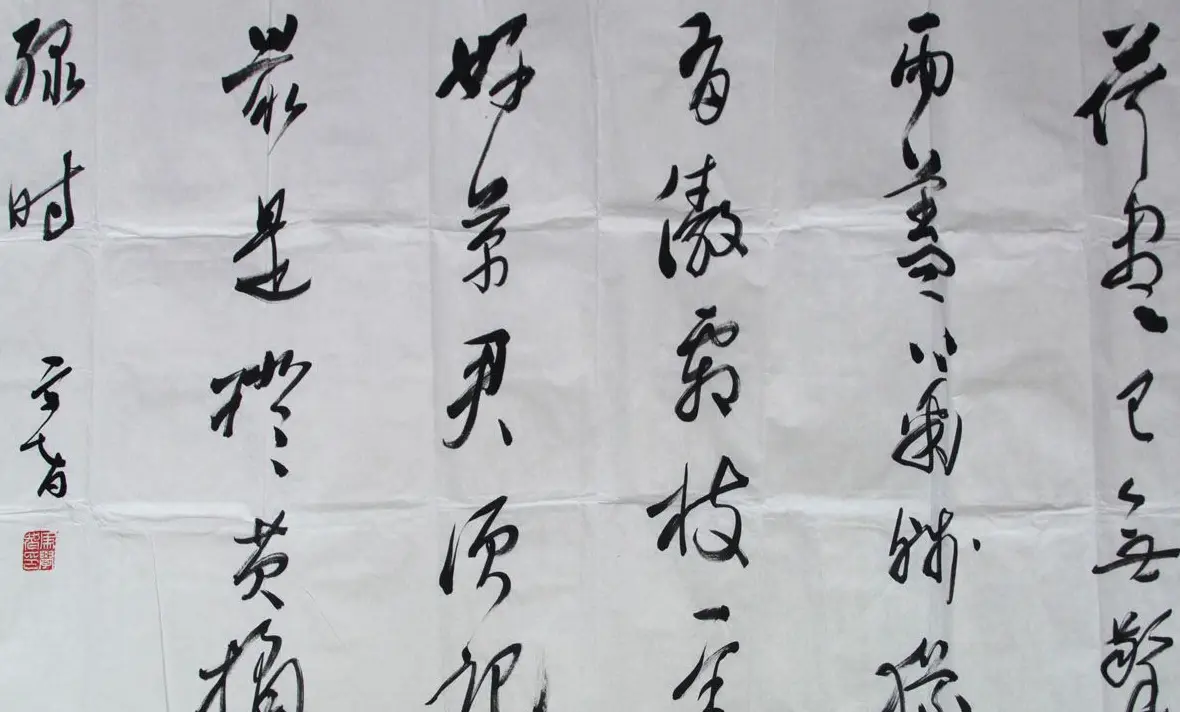 荷盡已無擎
雨蓋菊殘猶
有傲霜枝一年
好景君须记
最是橙黄橘
绿时